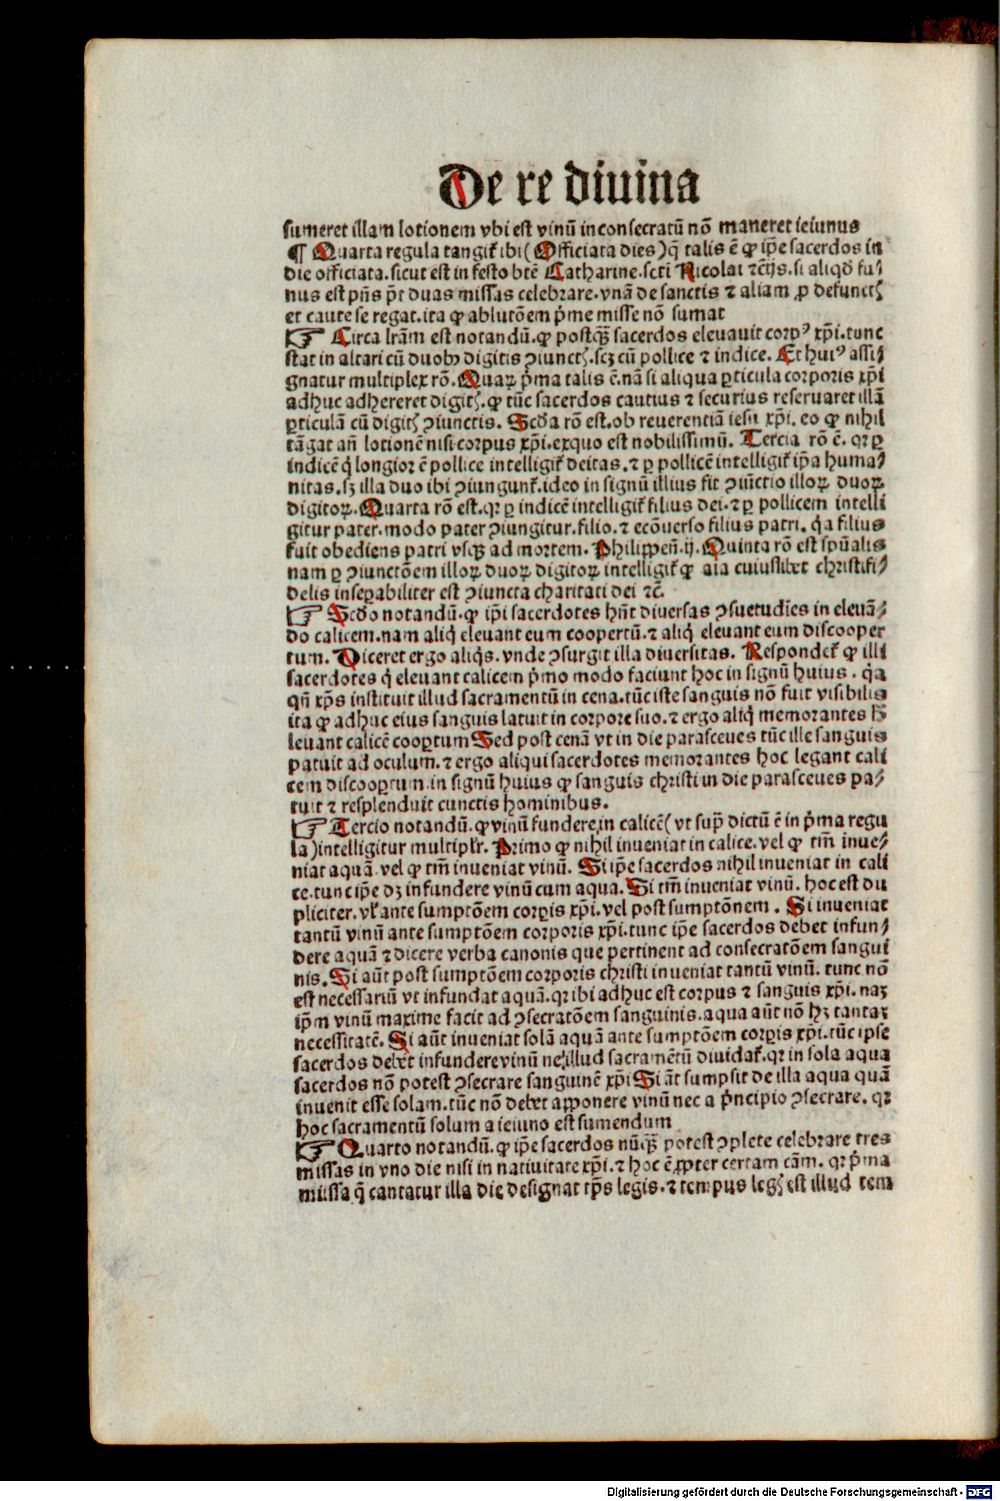 De re diuina
sumeret illam lotionem vbi est vinū inconsecratū nō maneret ieiunus
¶ Quarta regula tangit᷑ ibi (Officiata dies) q̄ talis ē ꝙ ip̄e sacerdos in
die officiata. sicut est in festo btē Catharine. scti Nicolai ⁊c̄ ijs. si aliqd̄ fu⸗
nus est p̄ns pōt duas missas celebrare. vnā de sanctis ⁊ aliam ꝓ defunctꝭ
et caute se regat. ita ꝙ ablutōem p̄me misse nō sumat
☞ Circa lr̄am est notandū. ꝙ postqꝫ̄ sacerdos eleuauit corpꝰ xp̄i. tunc
stat in altari cū duobꝫ digitis ꝯiunctꝭ. scꝫ cū pollice ⁊ indice. Et huiꝰ assi⸗
gnatur multiplex rō. Quaꝝ p̄ma talis ē. nā si aliqua ꝑticula corporis xp̄i
adhuc adhereret digitꝭ. ꝙ tūc sacerdos cautius ⁊ securius reseruaret illā
ꝑticulā cū digitꝭ ꝯiunctis. Scd̄a rō est. ob reuerentiā iesu xp̄i. eo ꝙ nihil
tāgat an̄ lotionē nisi corpus xp̄i. exquo est nobilissimū. Tercia rō ē. qꝛ ꝑ
indicē q̇ longior ē pollice intelligit᷑ deitas. ⁊ ꝑ pollicē intelligit᷑ ip̄a huma⸗
nitas. sꝫ illa duo ibi ꝯiungunt᷑. ideo in signū illius fit ꝯiūctio illoꝝ duoꝝ
digitoꝝ. Quarta rō est. qꝛ ꝑ indicē intelligit᷑ filius dei. ⁊ ꝑ pollicem intelli
gitur pater. modo pater ꝯiungitur. filio. ⁊ ecōuerso filius patri. q̇a filius
fuit obediens patri vsqꝫ ad mortem. Philippen̄. ij. Quinta rō est spūalis
nam ꝑ ꝯiunctōem illoꝝ duoꝝ digitoꝝ intelligit᷑ ꝙ aīa cuiuslibet christifi⸗
delis inseꝑabiliter est ꝯiuncta charitati dei ⁊c̄.
☞ Scd̄o notandū. ꝙ ip̄i sacerdotes hn̄t diuersas ꝯsuetudīes in eleuā⸗
do calicem. nam aliq̇ eleuant eum coopertū. ⁊ aliq̇ eleuant eum discooper
tum. Diceret ergo aliq̇s. vnde ꝯsurgit illa diuersitas. Respondet᷑ ꝙ illi
sacerdotes q̇ eleuant calicem p̄mo modo faciunt hoc in signū huius. q̇a
qn̄ xp̄s instituit illud sacramentū in cena. tūc iste sanguis nō fuit visibilis
ita ꝙ adhuc eius sanguis latuit in corpore suo. ⁊ ergo aliq̇ memorantes h̄
leuant calicē cooꝑtum Sed post cenā vt in die parasceues tūc ille sanguis
patuit ad oculum. ⁊ ergo aliqui sacerdotes memorantes hoc legant cali
cem discooꝑtum in signū huius ꝙ sanguis christi in die parasceues pa⸗
tuit ⁊ resplenduit cunctis hominibus.
☞ Tercio notandū. ꝙ vinū fundere in calicē (vt sup̄ dictū ē in p̄ma regu
la) intelligitur multiplr̄. Primo ꝙ nihil inueniat in calice. vel ꝙ tm̄ inue⸗
niat aquā. vel ꝙ tm̄ inueniat vinū. Si ip̄e sacerdos nihil inueniat in cali
ce. tunc ip̄e dꝫ infundere vinū cum aqua. Si tm̄ inueniat vinū. hoc est du
pliciter. vl̓ ante sumptōem corꝑis xp̄i. vel post sumptōnem. Si inueniat
tantū vinū ante sumptōem corporis xp̄i. tunc ip̄e sacerdos debet infun⸗
dere aquā ⁊ dicere verba canonis que pertinent ad consecratōem sangui
nis. Si aūt post sumptōem corporis christi inueniat tantū vinū. tunc nō
est necessariū vt infundat aquā. qꝛ ibi adhuc est corpus ⁊ sanguis xp̄i. naꝫ
ip̄m vinū maxime facit ad ꝯsecratōem sanguinis. aqua aūt nō hꝫ tantaꝫ
necessitatē. Si aūt inueniat solā aquā ante sumptōem corꝑis xp̄i. tūc ipse
sacerdos debet infundere vinū ne illud sacramētū diuidat᷑. qꝛ in sola aqua
sacerdos nō potest ꝯsecrare sanguinē xp̄i Si āt sumpsit de illa aqua quā
inuenit esse solam. tūc nō debet apponere vinū nec a p̄ncipio ꝯsecrare. qꝛ
hoc sacramentū solum a ieiuno est sumendum
☞ Quarto notandū. ꝙ ip̄e sacerdos nūqꝫ̄ potest ꝯplete celebrare tres
missas in vno die nisi in natiuitate xp̄i. ⁊ hoc ē ꝓpter certam cām. qꝛ p̄ma
missa q̄ cantatur illa die designat tp̄s legis. ⁊ tempus legꝭ est illud tem
Digitalisierung gefördert durch die Deutsche Forschungsgemeinschaft - DFG